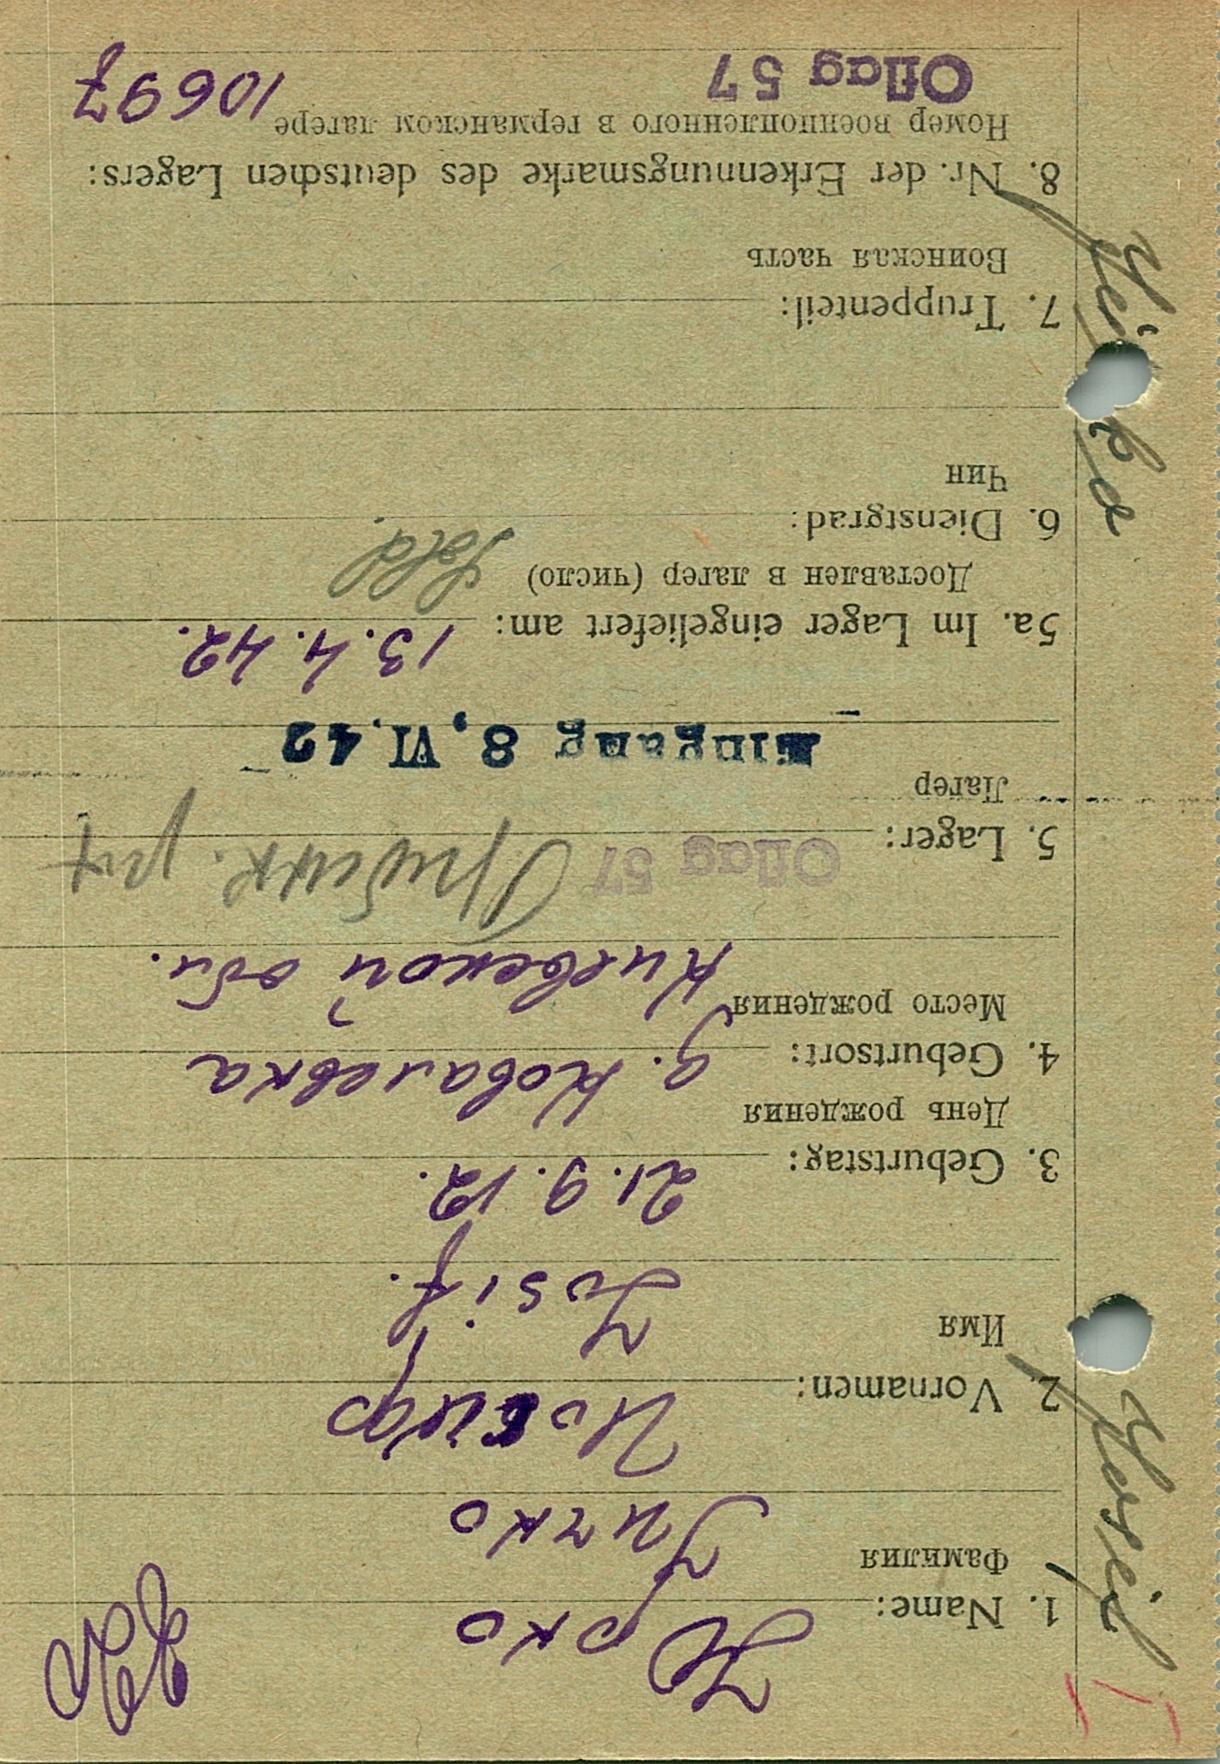 1. Name: Юрко
Фамилия
2. Vornamen: Иосиф
Имя
Josif.
3. Geburtstag: 21.9.12.
День рождения
4. Geburtsort: д. Ковалевка
Место рождения
Киевской обл.
5. Lager: Oflag 57
Лагер
Eingang 8. VI. 42
5a. Im Lager eingeliefert am: 13.4.42.
Доставлен в лагер (число)
6. Dienstgrad: Sold.
Чин
7. Truppenteil:
Воинская часть
8. Nr. der Erkennungsmarke des deutschen Lagers:
Номер военнопленного в германском лагере
Oflag 57 10697